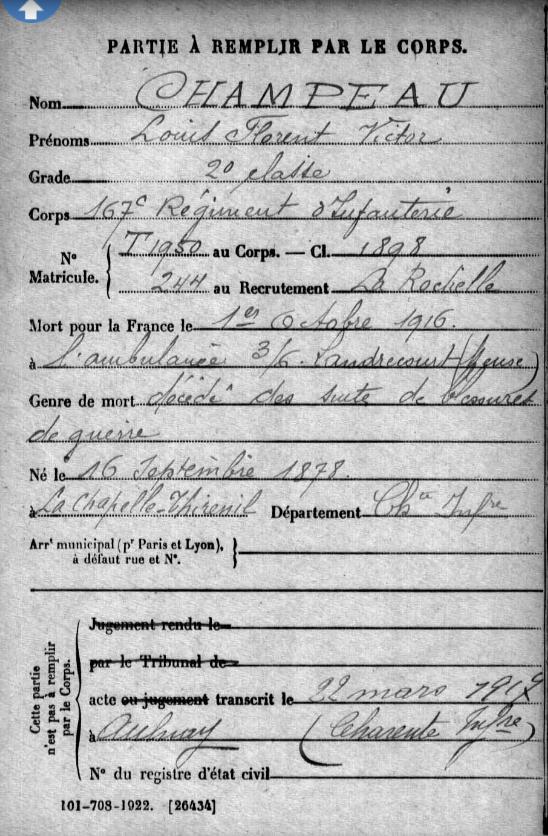 PARTIE À REMPLIR PAR LE CORPS.
Nom CHAMPEAU
Prénoms Louis Florent Victor
Grade 2e classe
Corps 167e Régiment d'Infanterie
N° Matricule. { T 1950 au Corps. — Cl. 1898
244 au Recrutement La Rochelle
Mort pour la France le 1er Octobre 1916.
à l'ambulance 3/6. Landrecourt (Meuse)
Genre de mort décédé des suite de blessures
de guerre
Né le 16 Septembre 1878.
à La Chapelle-Thireuil Département Chte Infre
Arrt municipal (pr Paris et Lyon), }
à défaut rue et N°.
Cette partie n'est pas à remplir par le Corps.
Jugement rendu le
par le Tribunal de
acte ou jugement transcrit le 22 mars 1917
à Aulnay (Charente Infre)
N° du registre d'état civil
101-708-1922. [26434]